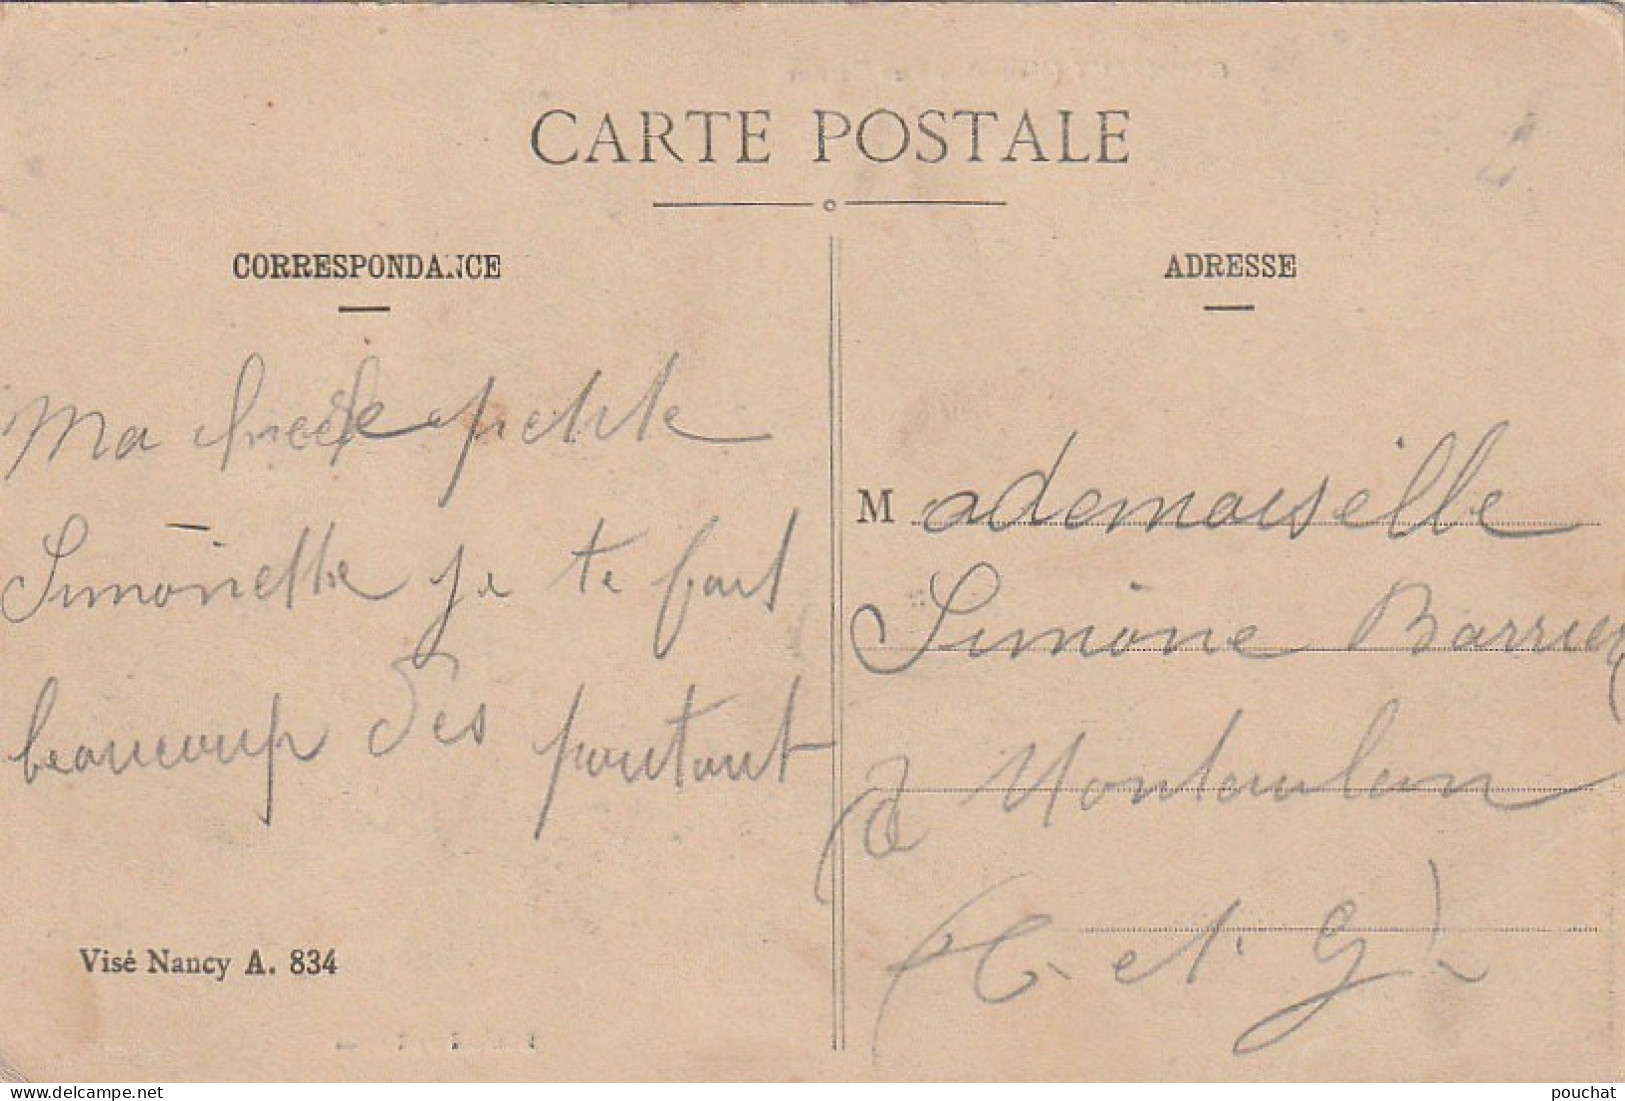 CARTE POSTALE
CORRESPONDANCE
ADRESSE
Ma chere petite
Simonette je te fait
beaucoup des poutout
Mademoiselle
Simone Barrier
à Montauban
(T. et. G)
Visé Nancy A. 834
delcampe.net
pouchat